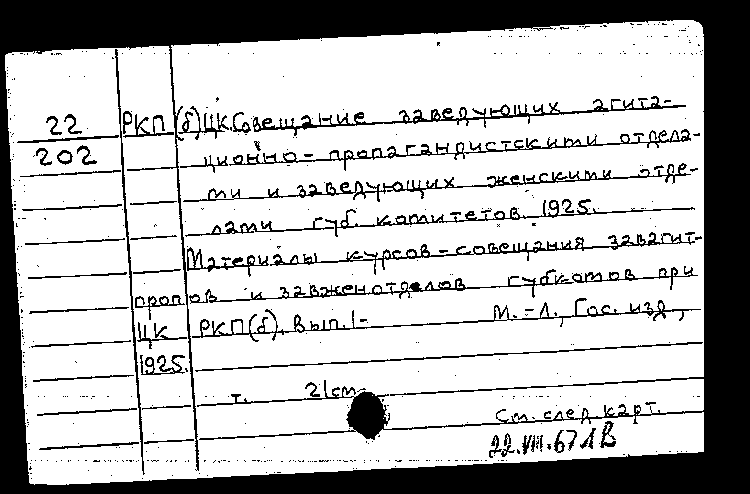 22 РКП (б) ЦК. Совещание заведующих агита-
202 ционно-пропагандистскими отдела-
ми и заведующих женскими отде-
лами губ. комитетов. 1925.
Материалы курсов-совещания завагит-
пропов и завженотделов губкомов при
ЦК РКП(б). Вып. 1- М.-Л., Гос. изд.,
1925.
т. 21см.
См. след карт.
22.VIII.67 ЛВ